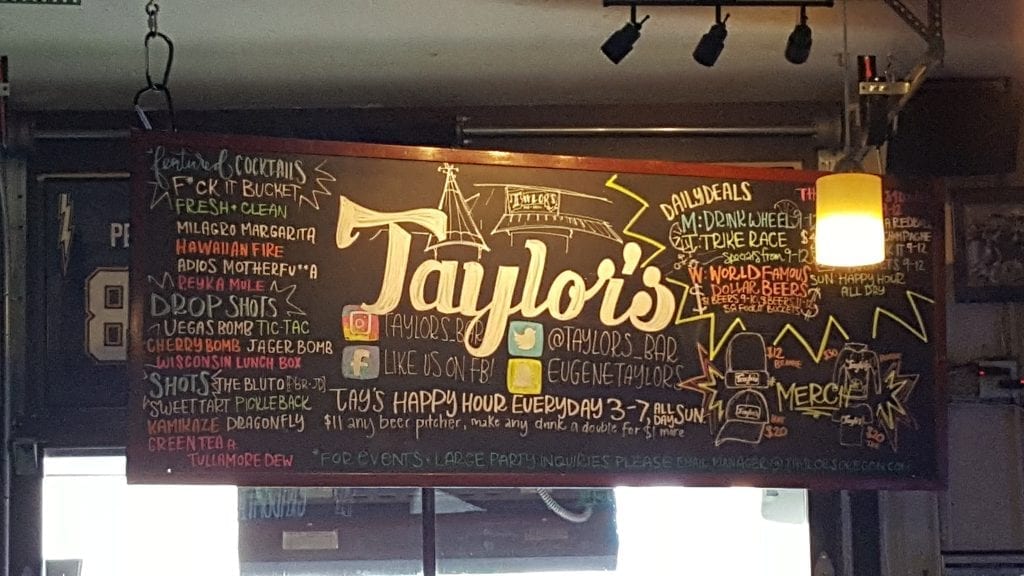 featured COCKTAILS
F*CK IT BUCKET
FRESH + CLEAN
MILAGRO MARGARITA
HAWAIIAN FIRE
ADIOS MOTHERFU**A
REYKA MULE
DROP SHOTS
VEGAS BOMB TIC-TAC
CHERRY BOMB JAGER BOMB
WISCONSIN LUNCH BOX
SHOTS THE BLUTO [BR-JD]
SWEETTART PICKLEBACK
KAMIKAZE DRAGONFLY
GREEN TEA
TULLAMORE DEW
TAYLOR'S
Taylor's
TAYLORS_BAR
@TAYLORS_BAR
LIKE US ON FB!
EUGENETAYLORS
TAY'S HAPPY HOUR EVERYDAY 3-7, ALL DAY SUN.
$11 any beer pitcher, make any drink a double for $1 more
*FOR EVENTS + LARGE PARTY INQUIRIES PLEASE EMAIL MANAGER@TAYLORSOREGON.COM
DAILY DEALS
M: DRINK WHEEL
T: TRIKE RACE
Specials from 9-12
W: WORLD FAMOUS
DOLLAR BEERS
TH
9-12
SUN HAPPY HOUR
ALL DAY
MERCH
$12
$30
$20
8